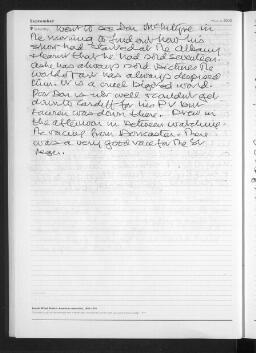 September
Went to see Don McIntyre in
the morning to find out how his
show had started at the Albany
& learnt that he had sold seventeen.
As he has always sold pictures the
world of art has always despised
him. It is a cruel bigoted world.
Poor Don is not well & couldn't get
down to Cardiff for his PV but
Lauren was down there. Drew in
the afternoon in between watching
the racing from Doncaster. There
was a very good race for the St
Leger.